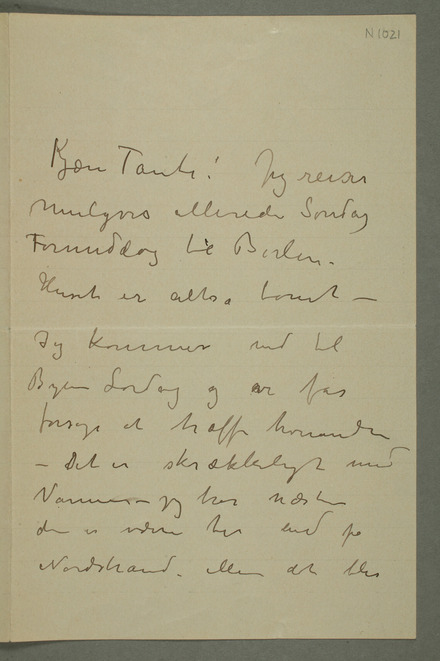 N 1021
Kjære Tante! Jeg reiser
muligvis allerede Søndag
Formiddag til Berlin.
Huset er altsa tomt –
Jeg kommer ind til
Byen Lørdag og vi far
forsøge at træffe hverandre
– Det er skrækkeligt med
Varmen – jeg tror næsten
den er værre her end på
Nordstrand. eller at blir